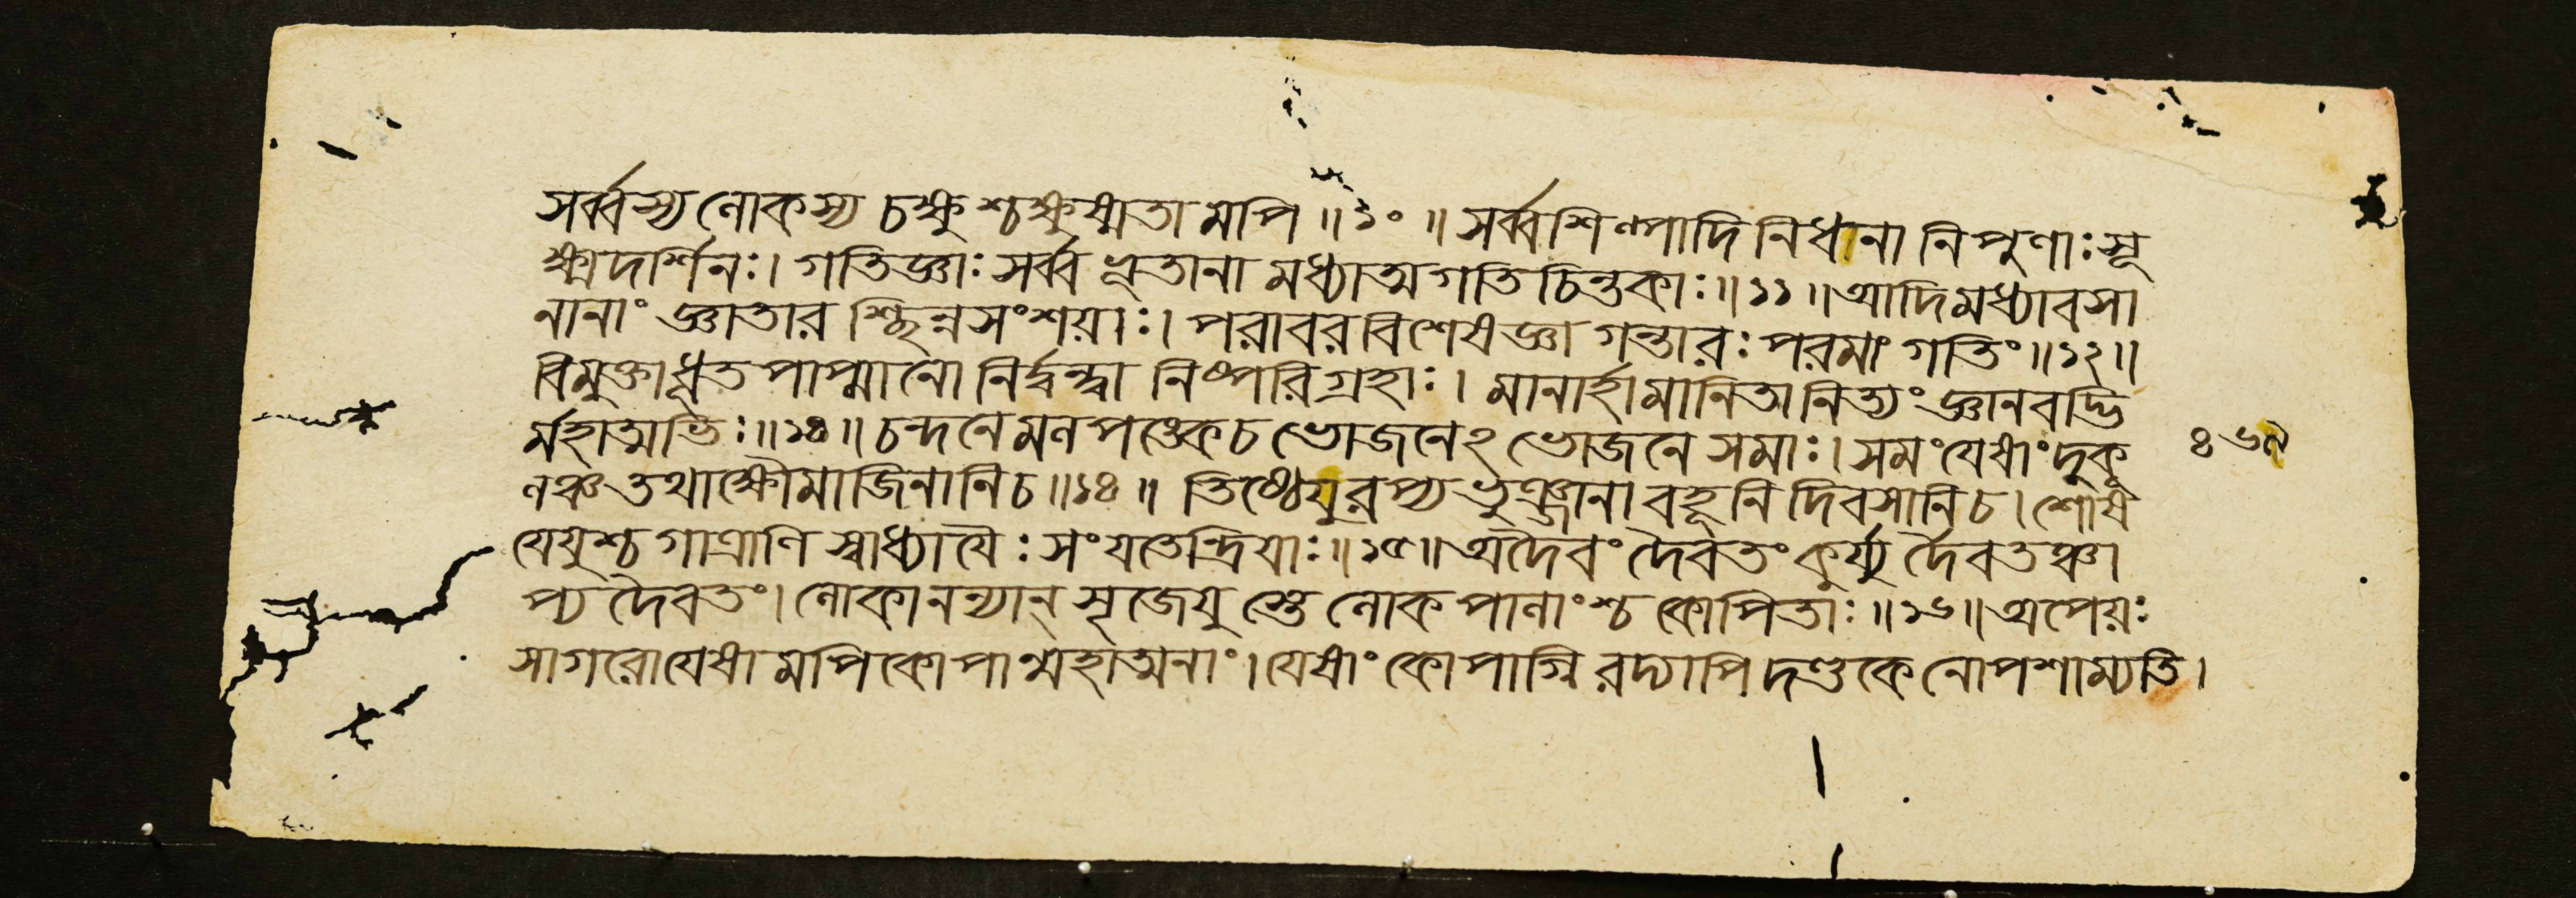 সর্ব্বস্য লোকস্য চক্ষুশ্চক্ষুষ্মতামপি॥১০॥ সর্ব্বশিল্পাদিনিধানা নিপুণাঃ সূ
ক্ষ্মদর্শিনঃ। গতিজ্ঞাঃ সর্ব্বভূতানামধ্যাত্মগতিচিন্তকাঃ॥১১॥ আদিমধ্যাবসা
নানাং জ্ঞাতারশ্ছিন্নসংশয়াঃ। পরাবরবিশেষজ্ঞা গন্তারঃ পরমাং গতিং॥১২॥
বিমুক্তাধূতপাপ্মানো নির্দ্বন্দ্বা নিষ্পরিগ্রহাঃ। মানার্হামানিতা নিত্যং জ্ঞানবদ্ভি
র্মহাত্মভিঃ॥১৪॥ চন্দনে মলপঙ্কেচ ভোজনেঽভোজনে সমাঃ। সমং যেষাং দুকূ
লঞ্চ তথা ক্ষৌমাজিনানিচ॥১৪॥ তিষ্ঠেয়ুরপ্যভুঞ্জানা বহূনি দিবসানিচ। শোষ
যেয়ুশ্চ গাত্রাণি স্বাধ্যাযৈঃ সংযতেন্দ্রিযাঃ॥১৫॥ অদৈবং দৈবতং কুর্য্যুর্দৈবতঞ্চা
প্যদৈবতং। লোকানন্যান্ সৃজেয়ুস্তে লোকপালাংশ্চ কোপিতাঃ॥১৬॥ অপেয়ঃ
সাগরো যেষামপি কোপান্মহাত্মনাং। যেষাং কোপাগ্নিরদ্যাপি দণ্ডকে নোপশাম্যতি।